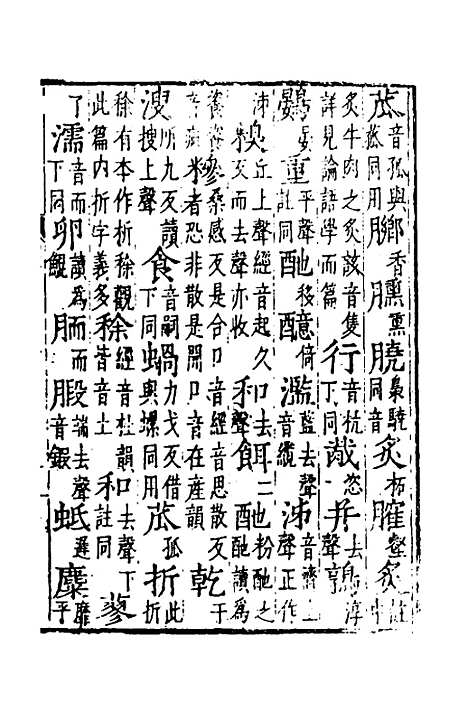 苽音孤與苽同用膷香臐熏膮梟驍同音炙柘臛壑炙註中
炙牛肉之炙該音隻詳見論語學而篇行音杭下同胾恣并去聲鶉淳
鷃晏重平聲註同酏移醷倚濫藍去聲音纜泲音濟上聲正作
泲糗丘上聲經音起久反又而去聲亦收和去聲餌二酏粉酏之酏讀為
糝桑感反是合口音經音思散反者恐非散是開口音在產韻乾干
溲所九反讀搜上聲食音嗣下同蝸力戈反借與螺同用苽孤折此折
稌有本作析稌觀此篇內折字義多稌經音杜韻皆音土和去聲下註同蓼
了濡音而下同卵讀為鯤胹而腶端去聲音鍛蚳遲麋